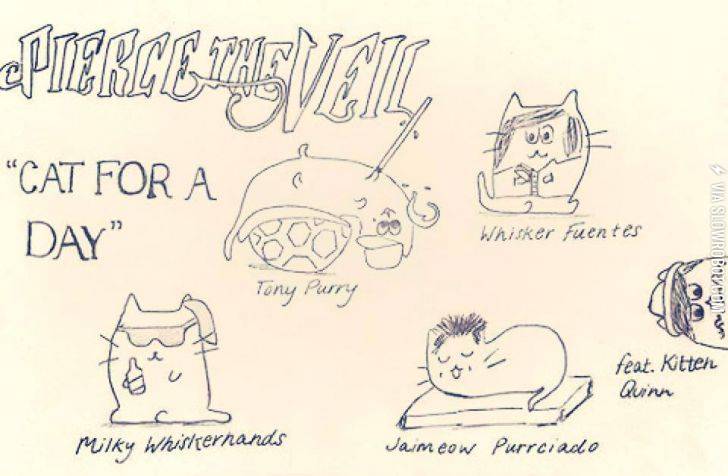 PIERCE THE VEIL
"CAT FOR A
DAY"
Whisker Fuentes
Tony Purry
feat. Kitten
Quinn
Milky Whiskerhands
Jaimeow Purrciado
VIA